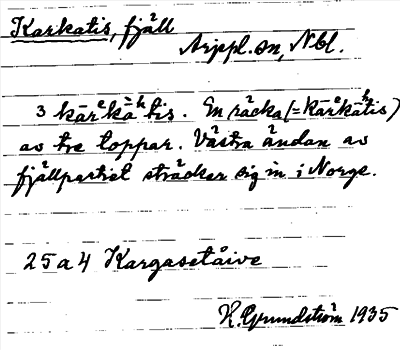 Karkatis, fjäll
Arjpl. sn, Nbl.
3 kārᵉkàʰtis. En räcka (= kārᵉkàʰtis)
av tre toppar. Västra ändan av
fjällpartiet sträcker sig in i Norge.
25a4 Kargasetåive
H. Grundström 1935